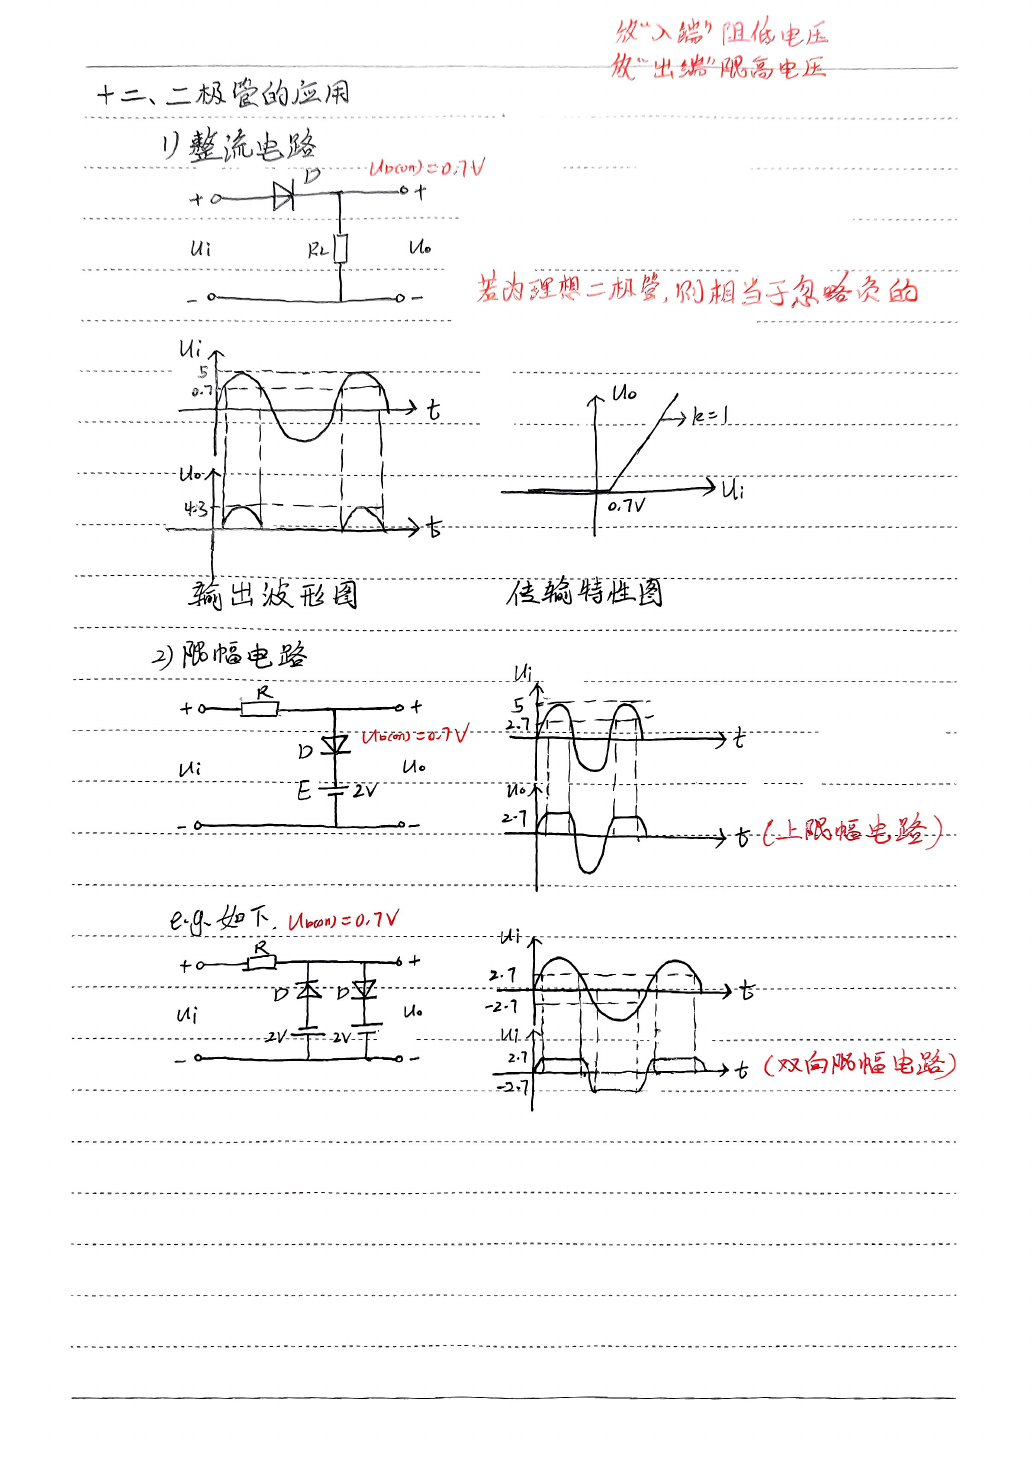 放“入端”阻低电压
放“出端”限高电压
十二、二极管的应用
1) 整流电路
UD(on)=0.7V
D
+ +
Ui RL Uo
- -
若为理想二极管,则相当于忽略负的
Ui
5
0.7
t
Uo
4.3
t
输出波形图
Uo
k=1
Ui
0.7V
传输特性图
2) 限幅电路
R
+ +
D UD(on)=0.7V
Ui Uo
E 2V
- -
Ui
5
2.7
t
Uo
2.7
t (上限幅电路)
e.g. 如下. UD(on)=0.7V
R
+ +
D D
Ui Uo
2V 2V
- -
Ui
2.7
t
-2.7
Ui
2.7
t (双向限幅电路)
-2.7